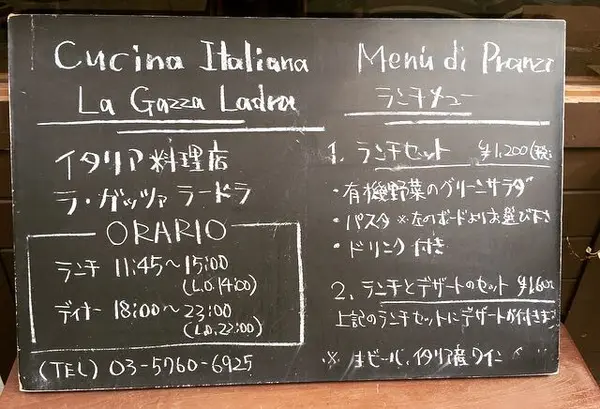 Cucina Italiana
La Gazza Ladra
イタリア料理店
ラ・ガッツァ ラードラ
ORARIO
ランチ 11:45〜15:00
(L.O.14:00)
ディナー 18:00〜23:00
(L.O.22:00)
(TEL) 03-5760-6925
Menù di Pranzi
ランチメニュー
1. ランチセット ¥1,200(税
・有機野菜のグリーンサラダ
・パスタ ※左のボードよりお選び下さい
・ドリンク付き
2. ランチとデザートのセット ¥1,600
上記のランチセットにデザートが付きます
※ 生ビール、イタリア産ワイン